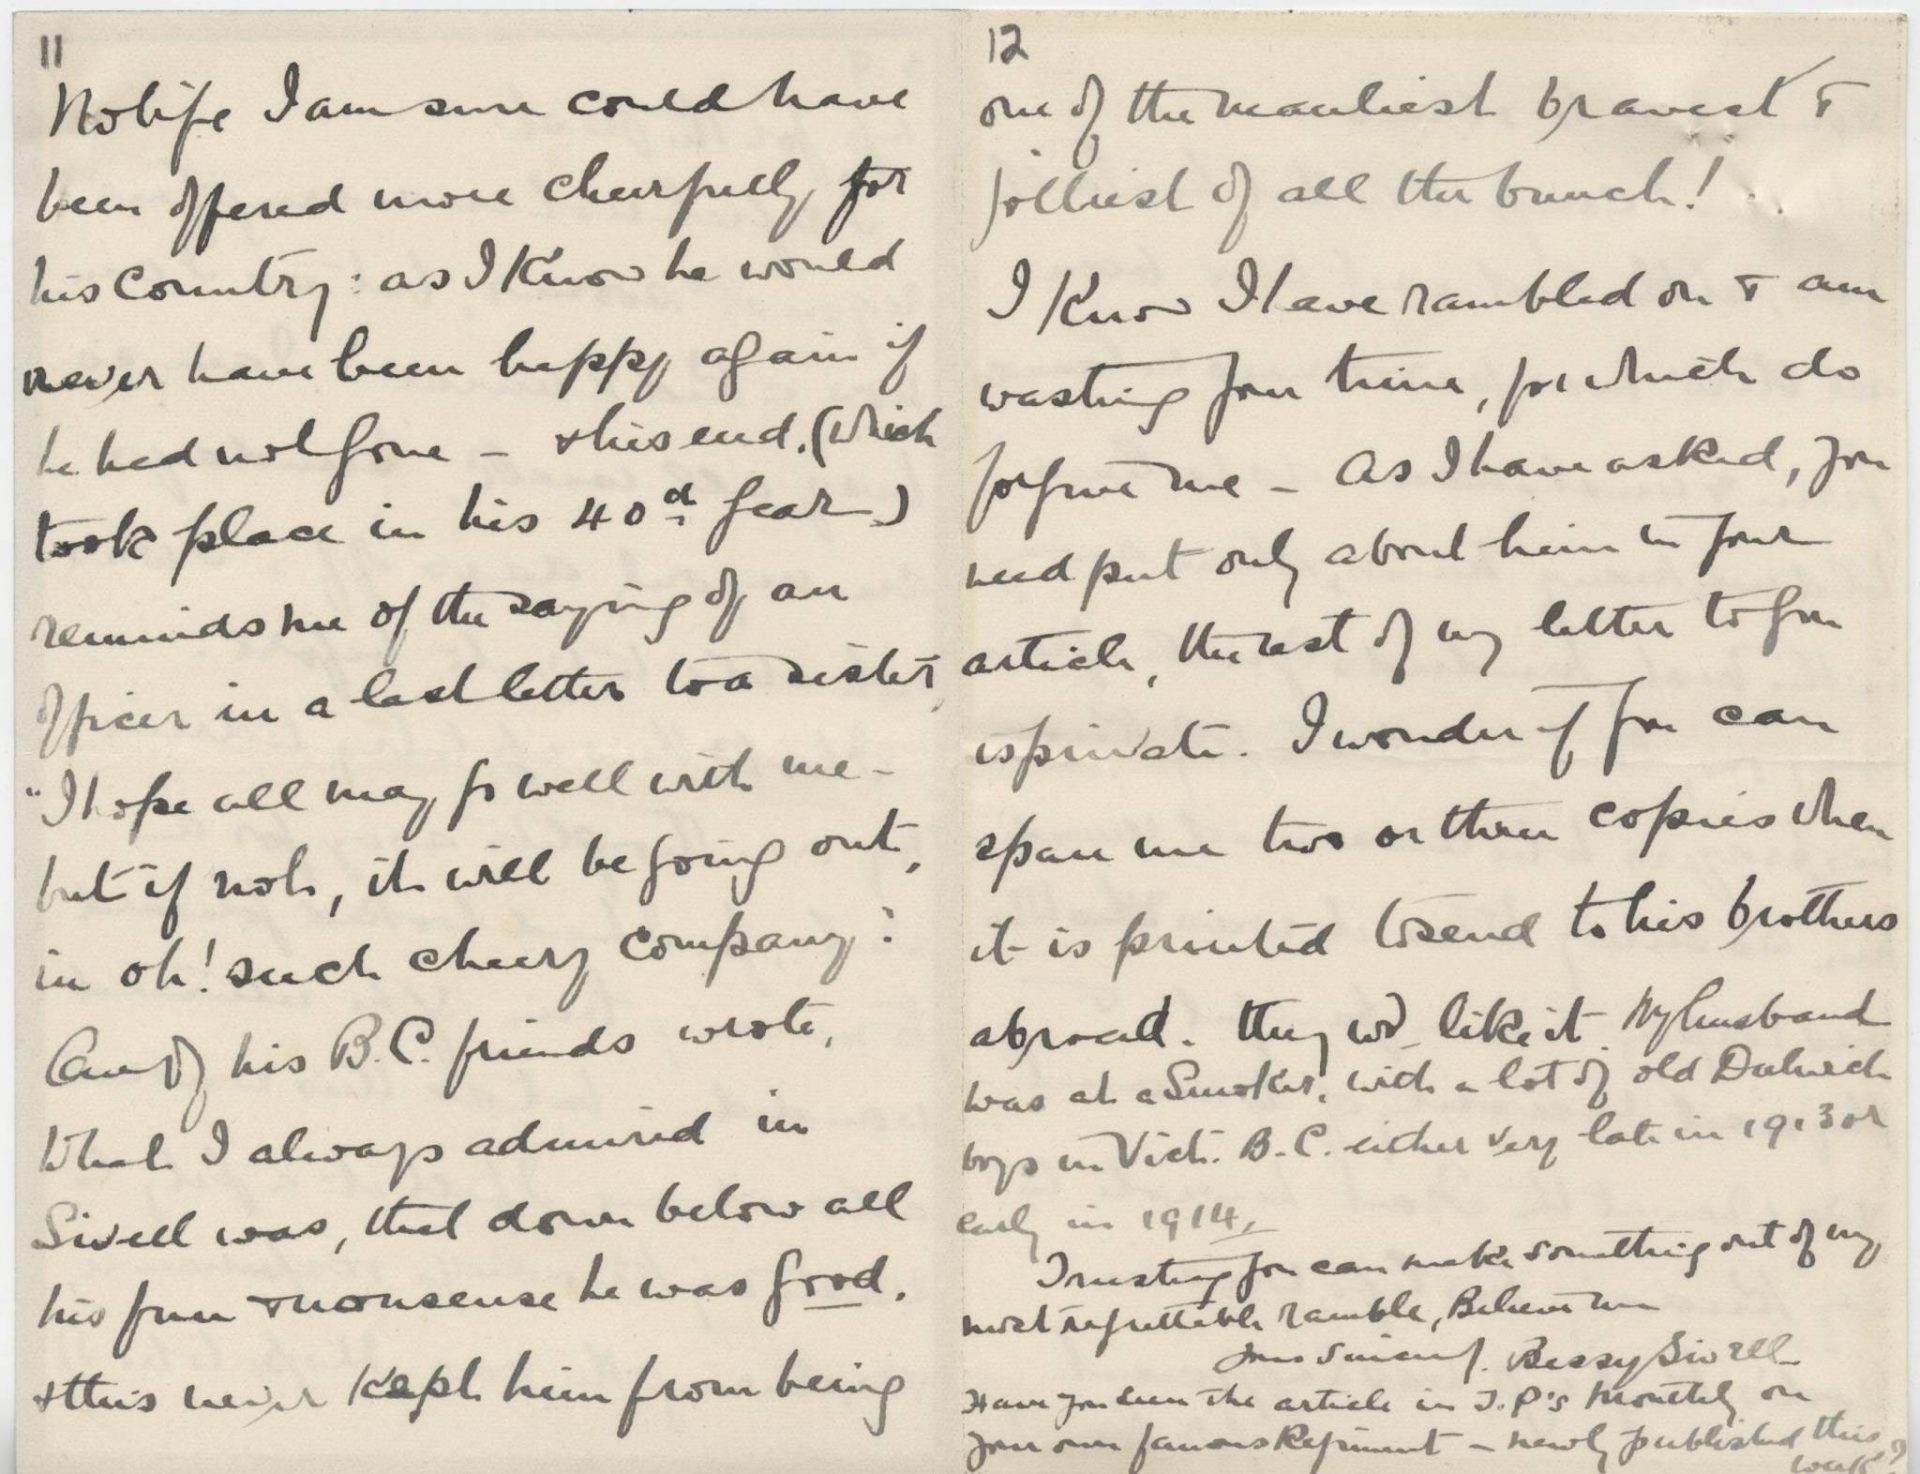 11
No life I am sure could have
been offered more cheerfully for
his Country: as I Know he would
never have been happy again if
he had not gone – & his end. (which
took place in his 40d year)
reminds me of the saying of an
officer in a last letter to a sister,
"I hope all may go well with me –
but if not, it will be going out,
in oh! such cheery company:
One of his B.C. friends wrote,
What I always admired in
Sivell was, that down below all
his fun & nonsense he was good.
& this never Kept him from being
12
one of the manliest bravest &
jolliest of all the bunch!
I Know I have rambled on & am
wasting your time, for which do
forgive me – As I have asked, you
need put only about him in your
article, the rest of my letter to you
is private. I wonder if you can
spare me two or three copies when
it is printed to send to his brothers
abroad. they wd like it. My husband
was at a Smoker, with a lot of old Dulwich
boys in Vict. B.C. either very late in 1913 or
early in 1914,
Trusting you can make something out of my
most regrettable ramble, Believe me
Yours Sincerely. Bessy Sivell
Have you seen the article in T.P's Monthly on
your own famous Regiment – newly published this
week?